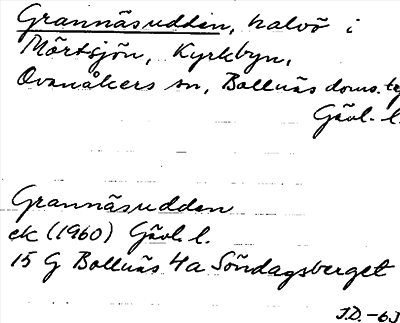 Grannäsudden, halvö i
Mörtsjön, Kyrkbyn,
Ovanåkers sn, Bollnäs doms. tg
Gävl. l.
Grannäsudden
ek (1960) Gävl. l.
15 G Bollnäs 4a Söndagsberget
J.D. -63